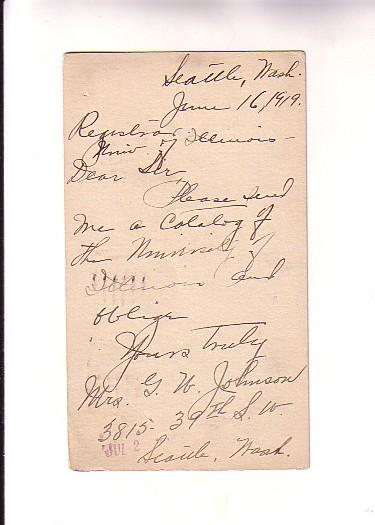 Seattle, Wash.
June 16, 1919.
Registrar
Univ. of Illinois
Dear Sir
Please send
me a Catalog of
the University of
Illinois and
oblige
Yours Truly
Mrs. G. W. Johnson
3815- 39th S. W.
JUL 2
Seattle, Wash.